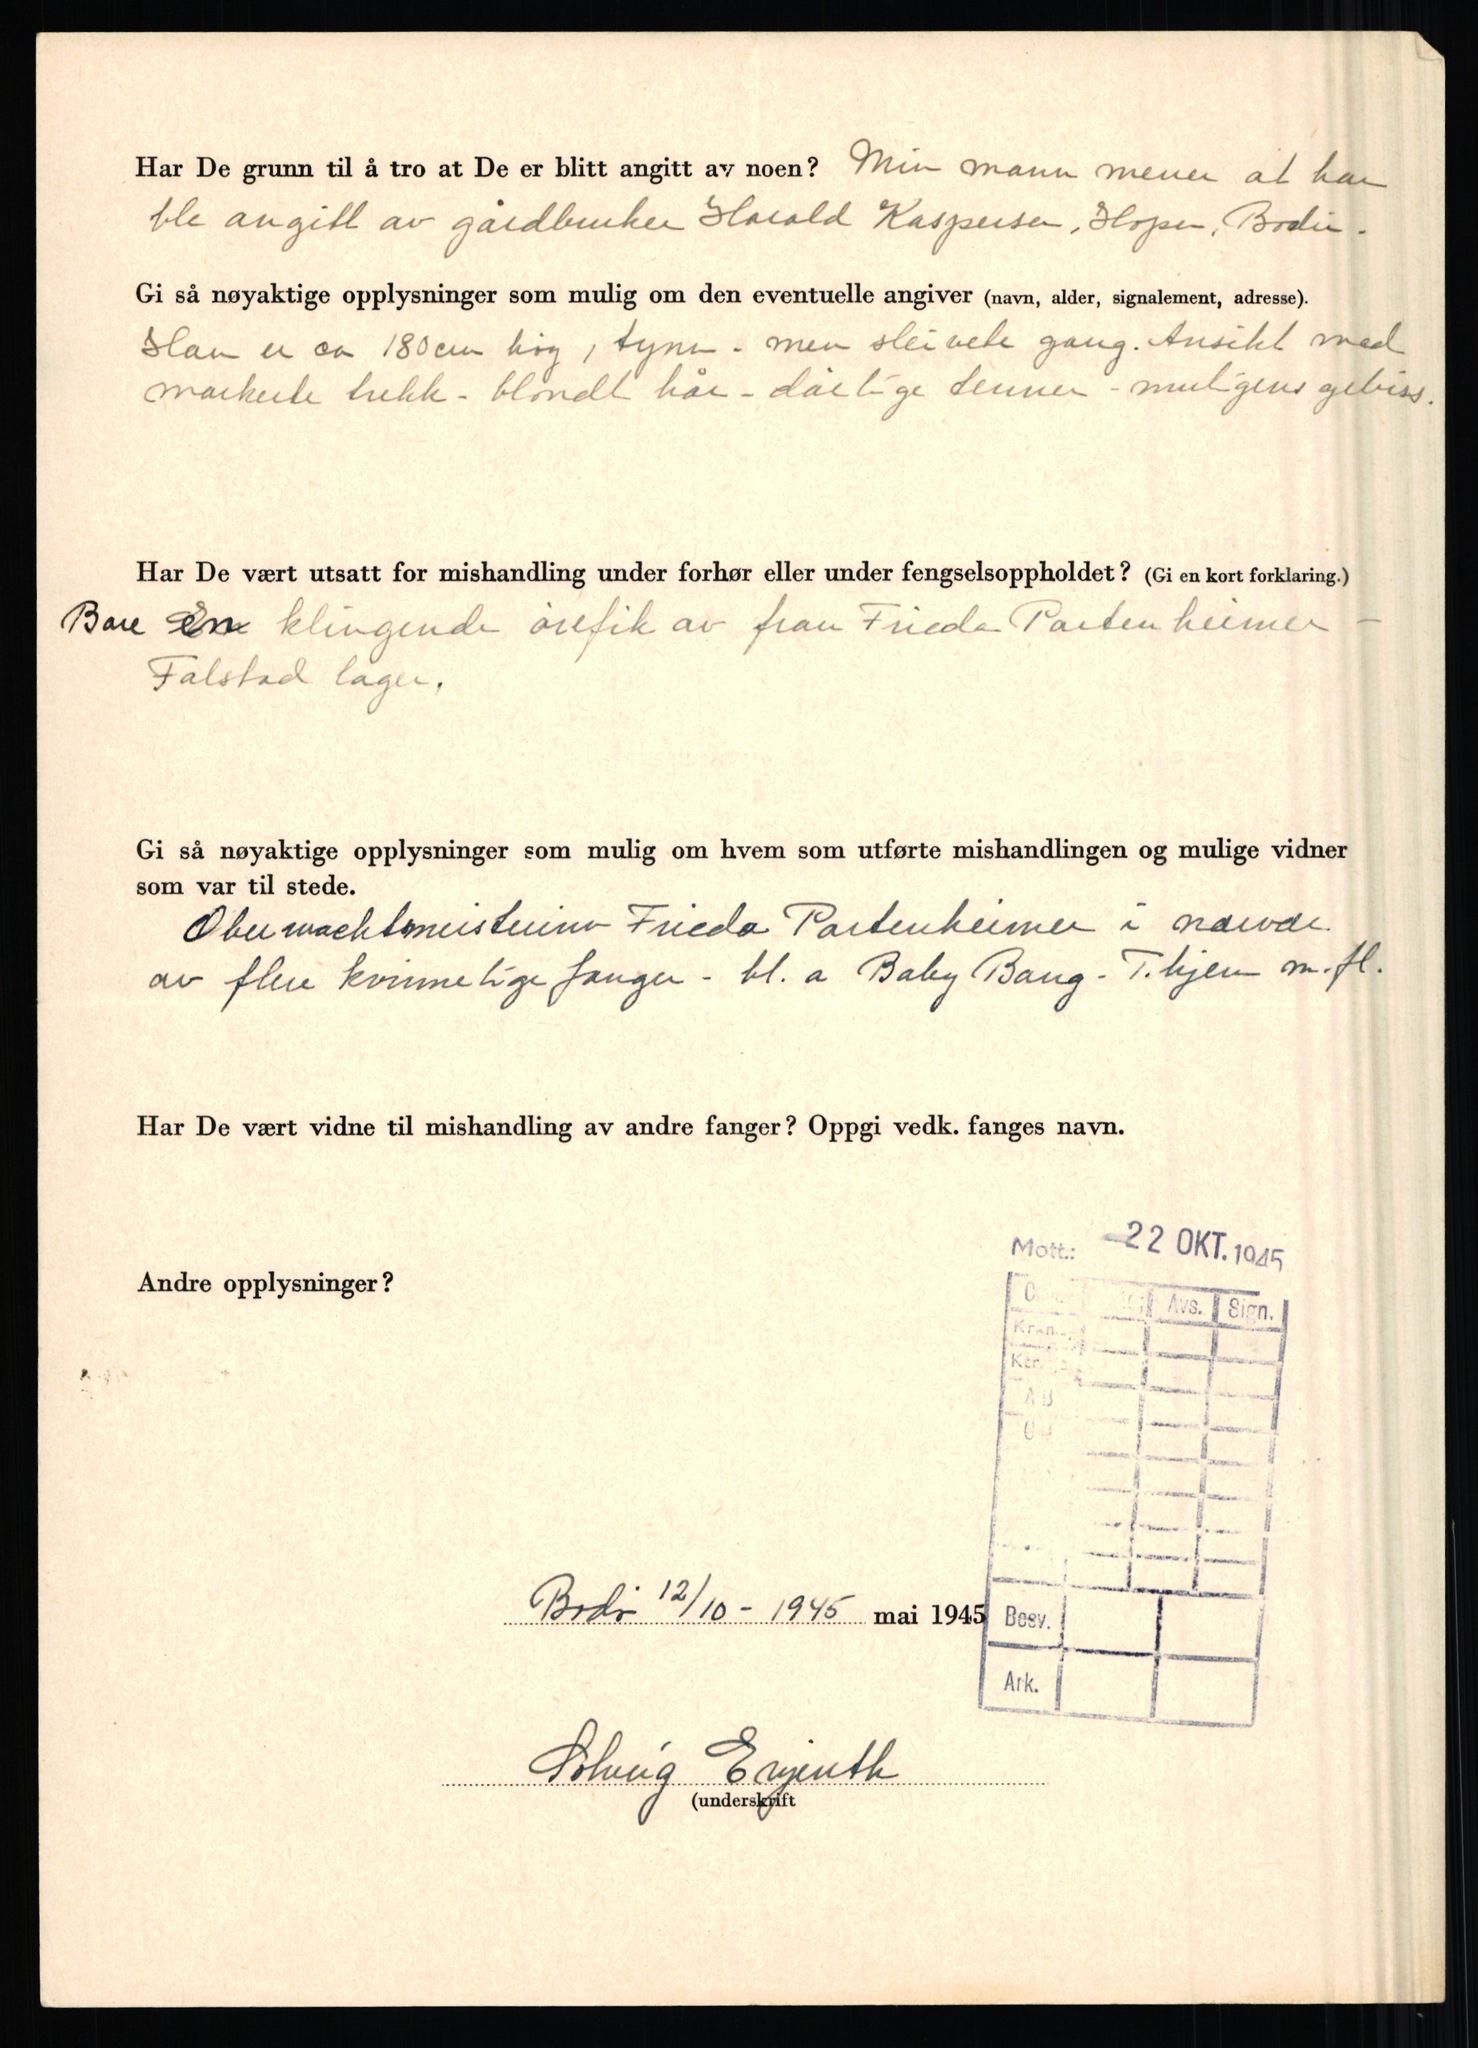 Har De grunn til å tro at De er blitt angitt av noen? Min mann mener at han
ble angitt av gårdbruker Harald Kaspersen, Hopen, Bodin.
Gi så nøyaktige opplysninger som mulig om den eventuelle angiver (navn, alder, signalement, adresse).
Han er ca 180 cm høy, tynn - men sleivete gang. Ansikt med
markerte trekk - blondt hår - dårlige tenner - muligens gebiss.
Har De vært utsatt for mishandling under forhør eller under fengselsoppholdet? (Gi en kort forklaring.)
Bare En klingende ørefik av frau Frieda Partenheimer -
Falstad lager.
Gi så nøyaktige opplysninger som mulig om hvem som utførte mishandlingen og mulige vidner
som var til stede.
Oberwachtmeisterin Frieda Partenheimer i nærvær
av flere kvinnelige fanger - bl. a Baby Bang - T.hjem m. fl.
Har De vært vidne til mishandling av andre fanger? Oppgi vedk. fanges navn.
Mott.: 22 OKT. 1945
Andre opplysninger?
Avs. Sign.
Bodø 12/10 - 1945 mai 1945
Besv.
Ark.
Solveig Erjenth
(underskrift